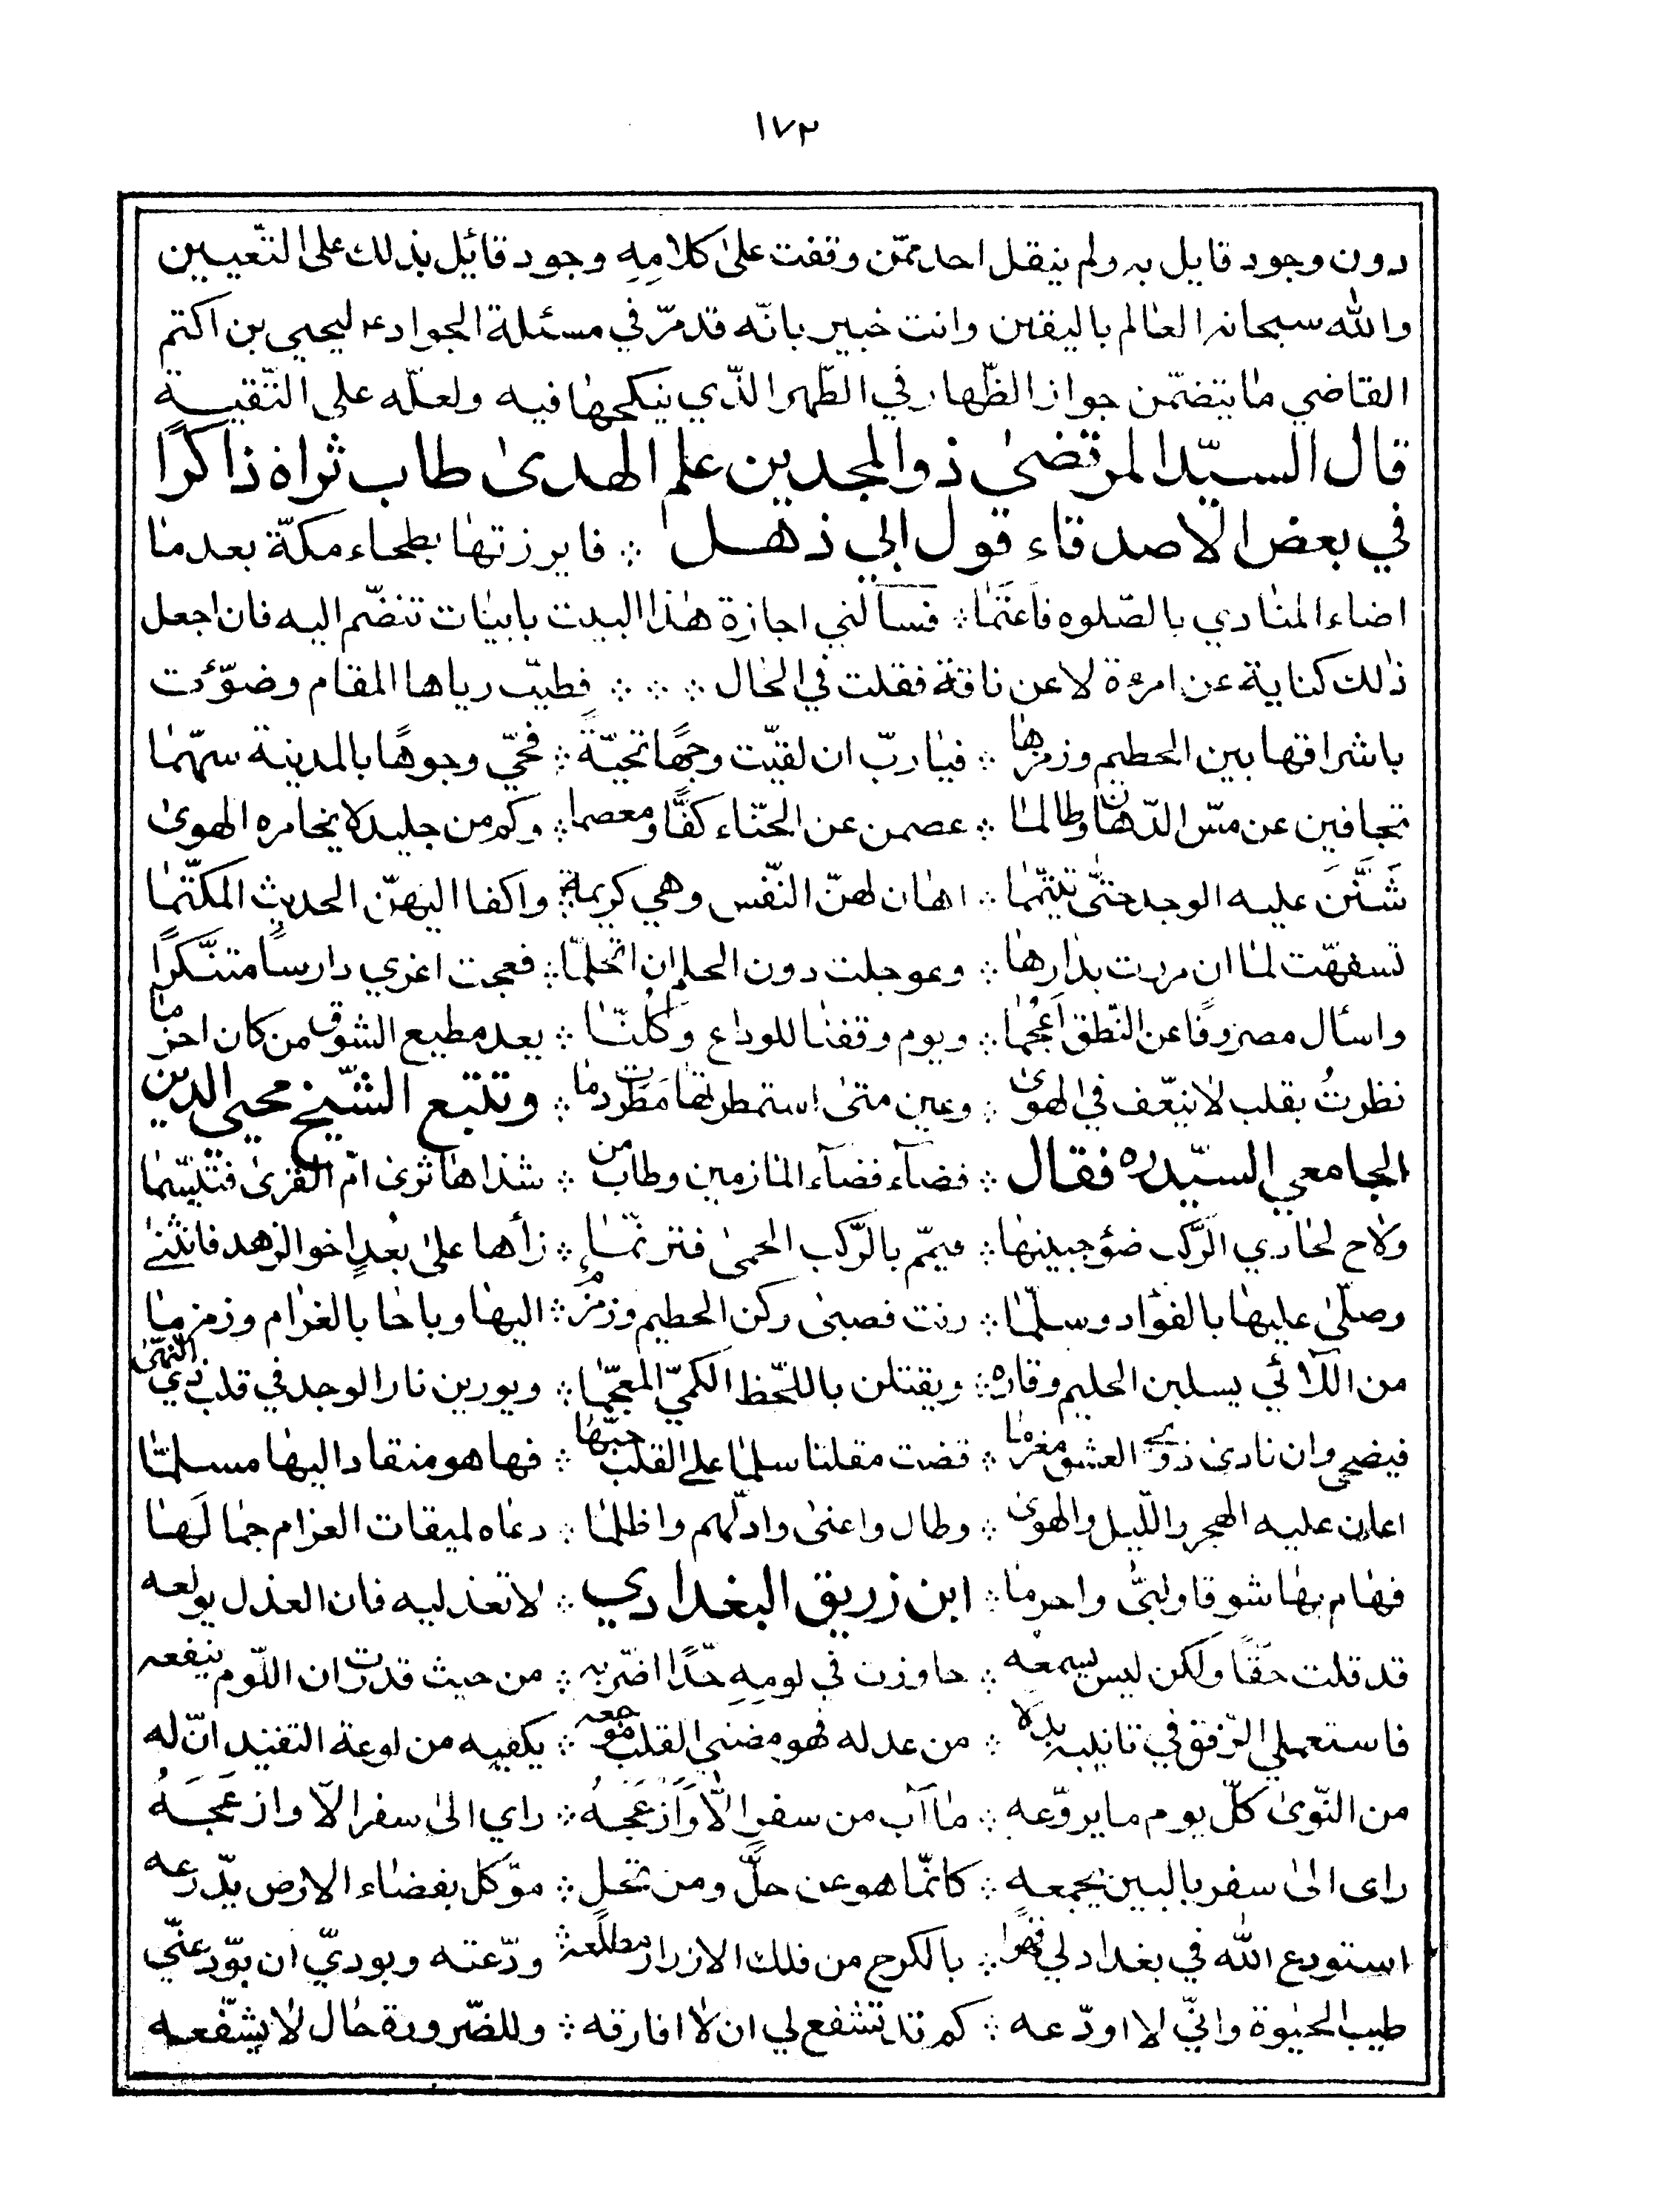 ١٧٢
دون وجود قايل به ولم ينقل احد ممّن وقفت على كلامِهِ وجود قائيل بذلك على التّعيين
والله سبحانه العالم باليقين وانت خبير بانّه قد مرّ في مسئلة الجواد عه ليحيى بن اكتم
القاضي ما يتضمّن جواز الظّهار في الطّهر الّذي ينكحها فيه ولعلّه على التّقية
قال السيّد المرتضى ذو المجدين علم الهدى طاب ثراه ذاكرًا
في بعض الاصدقاء قول ابي ذهل ⁘ فابرزتها بطحاء مكّة بعد ما
اضاء المنادي بالصّلوه فاعتما ⁘ فسألني اجازة هذا البيت بابيات تنضّم اليه فان اجعل
ذلك كناية عن امرءة لا عن ناقة فقلت في الحال ⁘ ⁘ ⁘ فطيّب رياها المقام وضوّئت
باشراقها بين الحطيم وزمزما ⁘ فيا ربّ ان لقيّت وجهًا تحيّةً ⁘ فحيّ وجوهًا بالمدينة سهّما
تجافين عن مسّ الدّهان وطالما ⁘ عصمن عن الحنّاء كفًّا ومعصما ⁘ وكم من جليد لا يخامره الهوى
شَنَّنَ عليه الوجد حتّى تتيّما ⁘ اهان لهنّ النّفس وهي كريمة ⁘ واكفا اليهنّ الحديث المكتّما
تسفهّت لما ان مررت بدارها ⁘ وعوجلت دون الحلم ان اتحلّما ⁘ فعجت اعزي دارسًا متنكّرًا
واسأل مصروفًا عن النّطق اَعجُما ⁘ ويوم وقفنا للوداع وكُلّنا ⁘ يعد مطيع الشوق من كان احزما
نظرتُ بقلب لا يعّنف في الهوى ⁘ وعين متى استمطرتها مَطَرَت دما ⁘ وتتبع الشّيخ محيي الدين
الجامعي السيّد ره فقال ⁘ فضآء فضآء المازمين وطاب من ⁘ شذاها ثرى امّ القرى فتنسّما
ولاح لحادي الرَّكب ضؤ جبينها ⁘ فيمّم بالرَّكب الحمى فترنّما ⁘ رأها على بُعدٍ اخو الزهد فانثنى
وصلّى عليها بالفؤاد وسلّما ⁘ رنت فصبى ركن الحطيم وزمزمٌ ⁘ اليها وباحا بالغرام وزمزما
من اللآئي يسلبن الحليم وقاره ⁘ ويقتلن باللّحظ الكميّ المعجّما ⁘ ويورين نار الوجد في قلب ذي النهى
فيضحى وان نادى ذوي العشق مغرما ⁘ قضت مقلتا سلما على القلب حبّها ⁘ فها هو منقاد اليها مسلمًا
اعان عليه الهجر واللّيل والهوى ⁘ وطال واعنى وادلّهم واظلما ⁘ دعاه لميقات الغرام جمالَها
فهام بها شوقا ولبّى واحرما ⁘ ابن زريق البغدادي ⁘ لا تعذليه فان العذل يولعه
قد قلت حقًّا ولكن ليس يسمعه ⁘ جاوزت في لومِهِ حدًّا اضرّ به ⁘ من حيث قدرت ان اللّوم ينفعه
فاستعملي الرّفق في تانيبه بدلا ⁘ من عدله فهو مضنى القلب موجعه ⁘ يكفيه من لوعة التفنيد انّ له
من النّوى كلّ يوم ما يروّعه ⁘ ما آب من سفرٍ الّا وَاَزعَجَهُ ⁘ راي الى سفر الّا وازعَجَهُ
راى الى سفر بالبين يجمعه ⁘ كانّما هو عن حلٍّ ومن تحل ⁘ موّكل بفضاء الارض يذّرعه
استودع الله في بغداد لي قمرًا ⁘ بالكرح من فلك الازرار مطلعه ⁘ ودّعته وبوديّ ان يوّدعنّي
طيب الحيوة وانّي لا اودّعه ⁘ كم قد تشفع لي ان لا افارقه ⁘ وللضّرورة حال لا يشفّعه